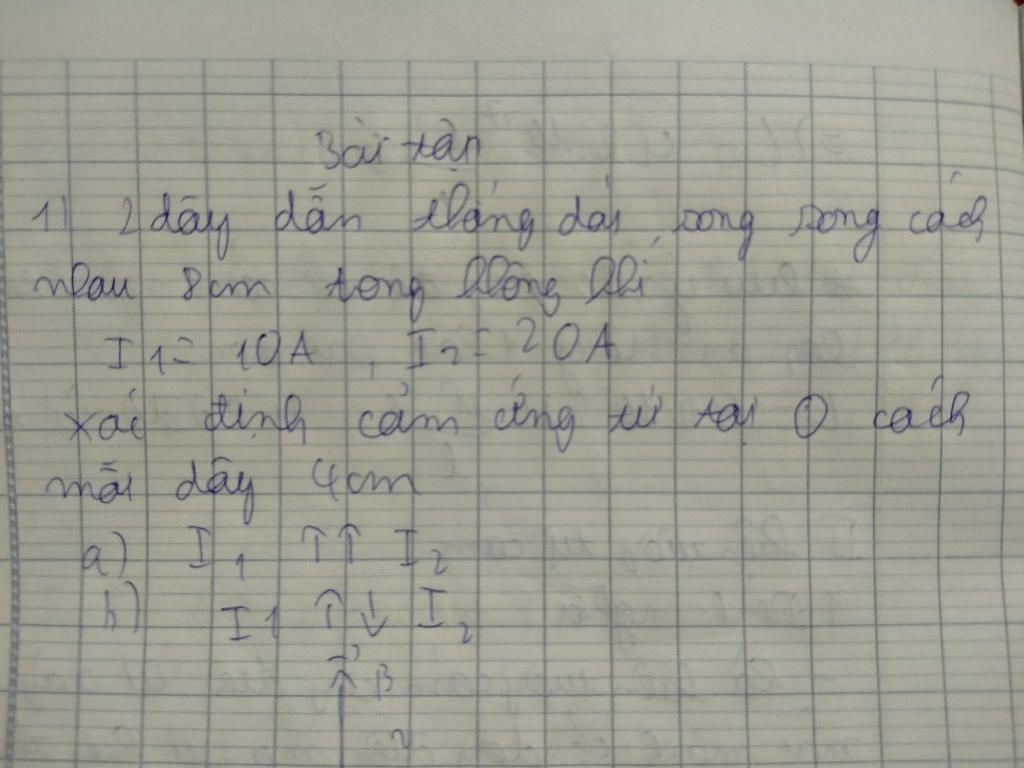 Bài tập
1) 2 dây dẫn thẳng dài, song song cách
nhau 8cm trong không khí
I1 = 10A, I2 = 20A
xác định cảm ứng từ tại O cách
mỗi dây 4cm
a) I1 ↑↑ I2
b) I1 ↑↓ I2
↑ B⃗